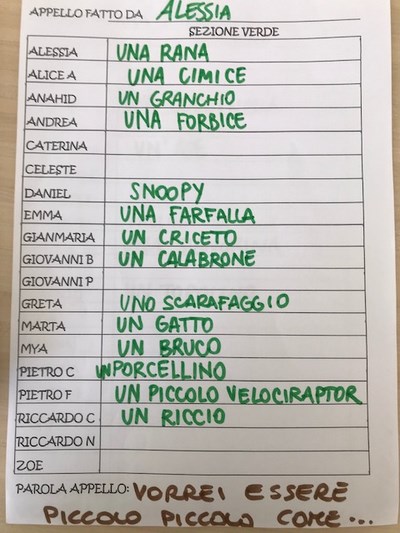 APPELLO FATTO DA ALESSIA
SEZIONE VERDE
ALESSIA UNA RANA
ALICE A UNA CIMICE
ANAHID UN GRANCHIO
ANDREA UNA FORBICE
CATERINA
CELESTE
DANIEL SNOOPY
EMMA UNA FARFALLA
GIANMARIA UN CRICETO
GIOVANNI B UN CALABRONE
GIOVANNI P
GRETA UNO SCARAFAGGIO
MARTA UN GATTO
MYA UN BRUCO
PIETRO C UN PORCELLINO
PIETRO F UN PICCOLO VELOCIRAPTOR
RICCARDO C UN RICCIO
RICCARDO N
ZOE
PAROLA APPELLO: VORREI ESSERE
PICCOLO PICCOLO COME...